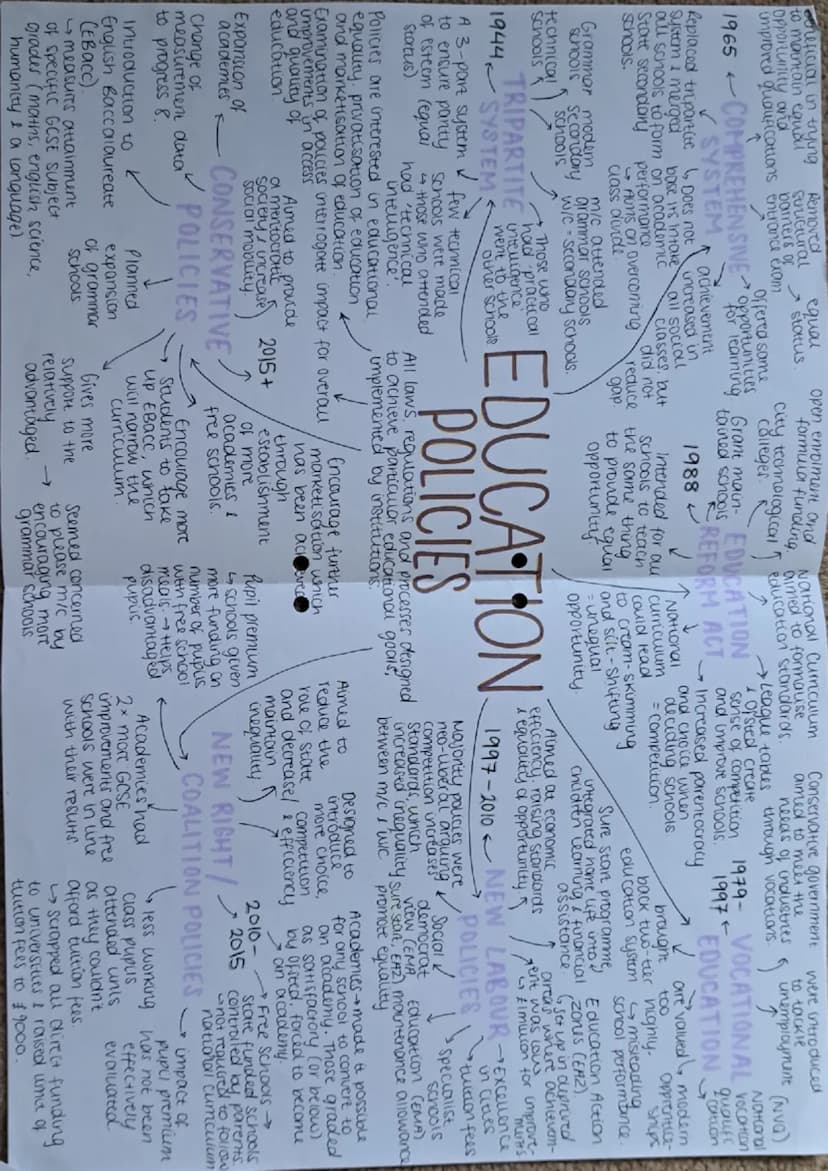 EDUCATION
POLICIES
All laws, regulations and processes designed
to achieve particular educational goals,
implemented by institutions.
Policies are interested in educational
equality, privatisation of education
and marketisation of education
Examination of policies interrogate impact for overall
improvements in access
and quality of
education.
TRIPARTITE
SYSTEM
1944
A 3-part system
to ensure parity
of esteem (equal
status)
Grammar
schools
modern
secondary
schools
technical
schools
few technical
schools were made
↳ those who attended
had 'technical
intelligence'.
Those who
had practical
intelligence
went to the
other schools
m/c attended
grammar schools
w/c = secondary schools.
COMPREHENSIVE
SYSTEM
1965
Replaced tripartite
system & merged
all schools to form
state secondary
schools.
↳ Does not
base its intake
on academic
performance
↳ Aims on overcoming
class divide.
achievement
increased in
all social
classes, but
did not
reduce
gap.
Offered some
opportunities
for learning
Removed
structural
barriers of
entrance exam
equal
status.
in trying
to maintain equal
opportunity and
improved qualifications
EDUCATION
REFORM ACT
1988
Grant main-
tained schools
City technological
colleges.
open enrolment and
formula funding
National Curriculum
aimed to formalise
education standards.
League tables
& Ofsted create
sense of competition
and improve schools
Increased parentocracy
and choice when
deciding schools
= competition.
National
curriculum
could lead
to cream-skimming
and silt-shifting
= unequal
opportunity.
Intended for all
schools to teach
the same thing
to provide equal
opportunity
VOCATIONAL
EDUCATION
1979-
1997
Conservative government
aimed to meet the
needs of industries
through vocations.
were introduced
to tackle
unemployment
(NVQ)
National
vocation
qualifi-
cation
modern
apprentice-
ships
are valued
too
highly.
↳ misleading
school performance.
brought
back two-tier
education system
NEW LABOUR
POLICIES
1997-2010
Majority policies were
neo-liberal arguing
competition increases
standards, which
increased inequality
between m/c & w/c
Social
democrat
view (EMA,
sure start, EAZ)
promote equality
Education
maintenance allowance
(EMA)
specialist
schools
tuition fees
Excellence
in Cities
Aimed at economic
efficiency, raising standards
& equality of opportunity
Sure Start programme
integrated home life into
children learning & financial
assistance
Education Action
Zones (EAZ).
(set up in deprived
areas where achievem-
ent was low
↳ £1million for improve-
ments
NEW RIGHT/
COALITION POLICIES
2010-
2015
Aimed to
reduce the
role of state
and decrease/
maintain
inequality
Designed to
introduce
more choice,
competition
& efficiency
Academies → made it possible
for any school to convert to
an academy. Those graded
as satisfactory (or below)
by Ofsted forced to become
an academy.
Free Schools →
State funded schools
controlled by parents
↳ not required to follow
national curriculum
impact of
pupil premium
has not been
effectively
evaluated
less working
class pupils
attended unis
as they couldn't
afford tuition fees.
↳ Scrapped all direct funding
to universities & raised limit of
tuition fees to £9000.
Academies had
2x more GCSE
improvements and free
schools were in line
with their results
Pupil premium
↳ schools given
more funding on
number of pupils
with free school
meals. → Helps
disadvantaged
pupils
CONSERVATIVE
POLICIES
2015+
Encourage further
marketisation which
has been achieved
through
establishment
of more
academies &
free schools.
Aimed to provide
a meritocratic
society & increase
social mobility.
Expansion of
academies
Change of
measurement data
to progress 8.
Introduction to
English Baccalaureate
(EBacc)
↳ measure attainment
of specific GCSE subject
grades (maths, english science,
humanity & a language)
Planned
expansion
of grammar
schools
Gives more
support to the
relatively
advantaged.
Seemed concerned
to please m/c by
encouraging more
grammar schools
Encourage more
students to take
up EBacc, which
will narrow the
curriculum.